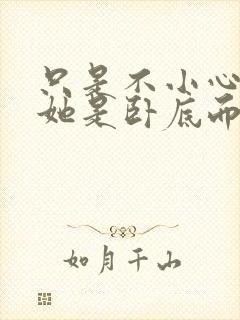 只是不小心
她是卧底而
如月千山